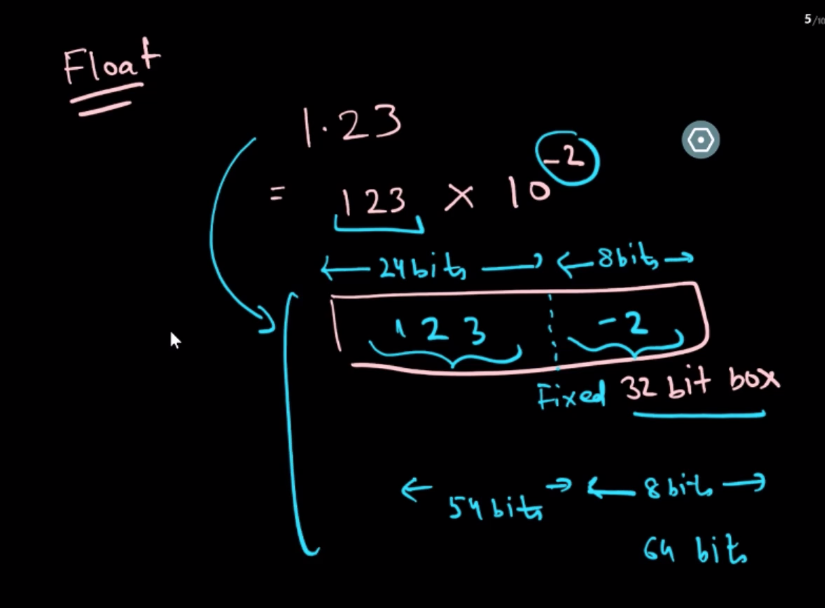 5/10
Float
1.23
= 123 × 10^-2
24 bits 8 bits
123 -2
Fixed 32 bit box
54 bits 8 bits
64 bits